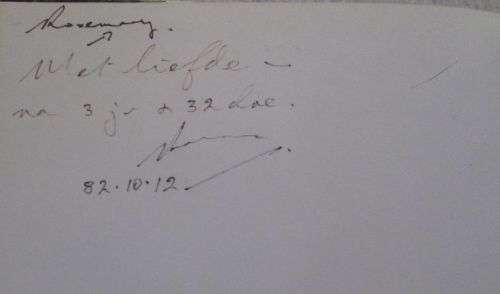 Rosemary.
Met liefde –
na 3 jr & 32 dae.
82.10.12